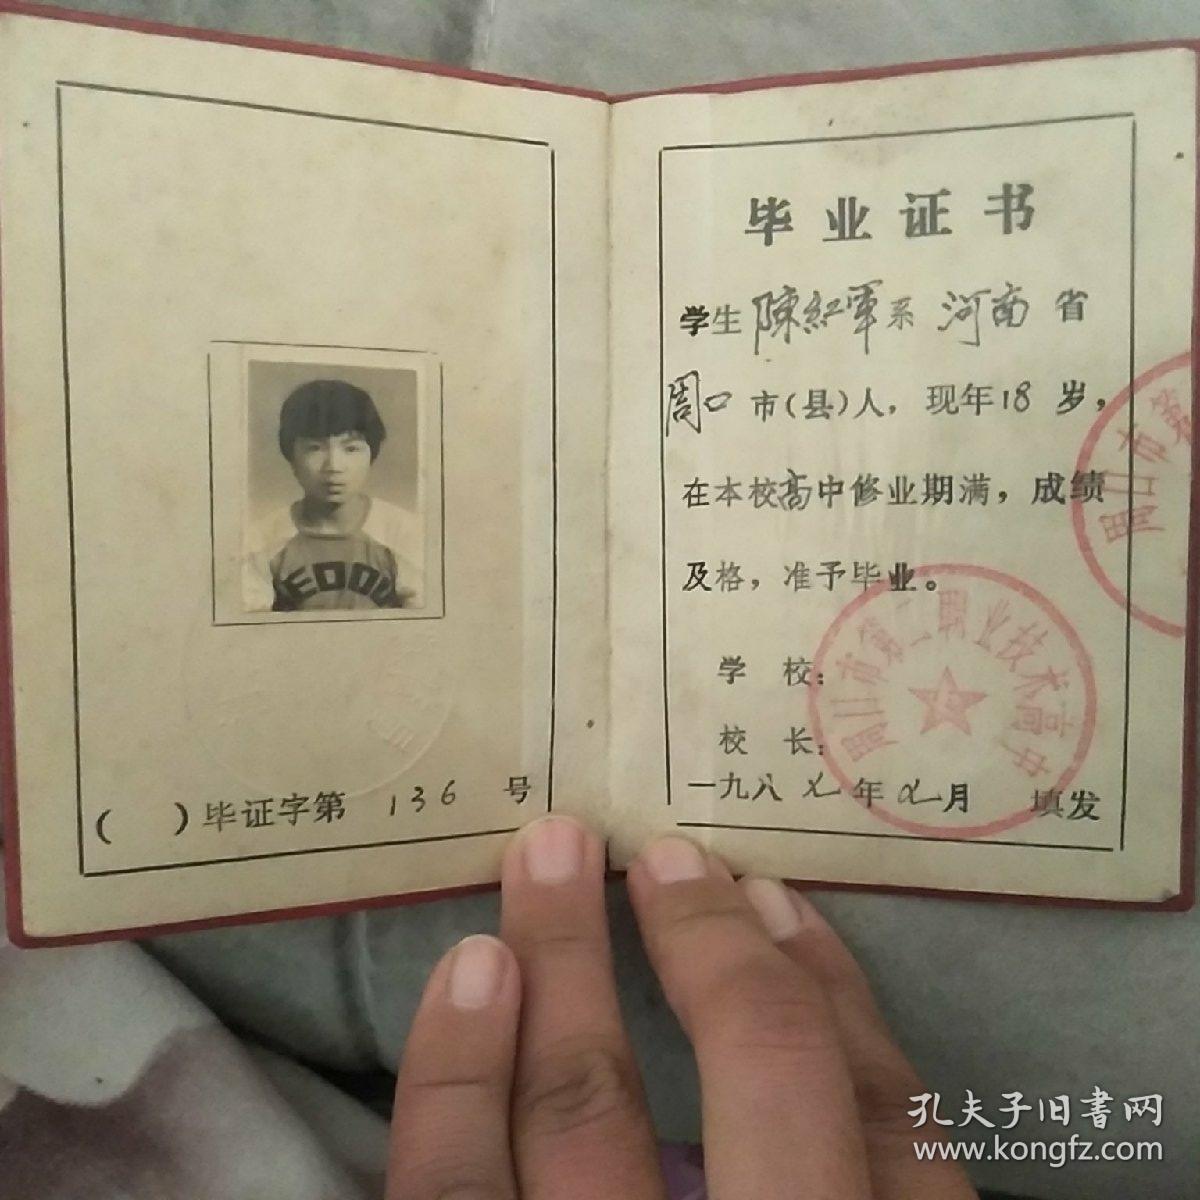 EDDY
( )毕证字第 136 号
毕业证书
学生陳紅軍系 河南 省
周口市(县)人，现年18岁，
在本校高中修业期满，成绩
及格，准予毕业。
学 校：
校 长：
一九八七年七月 填发
周口市第二职业技术高中
周口市第
孔夫子旧書网
www.kongfz.com